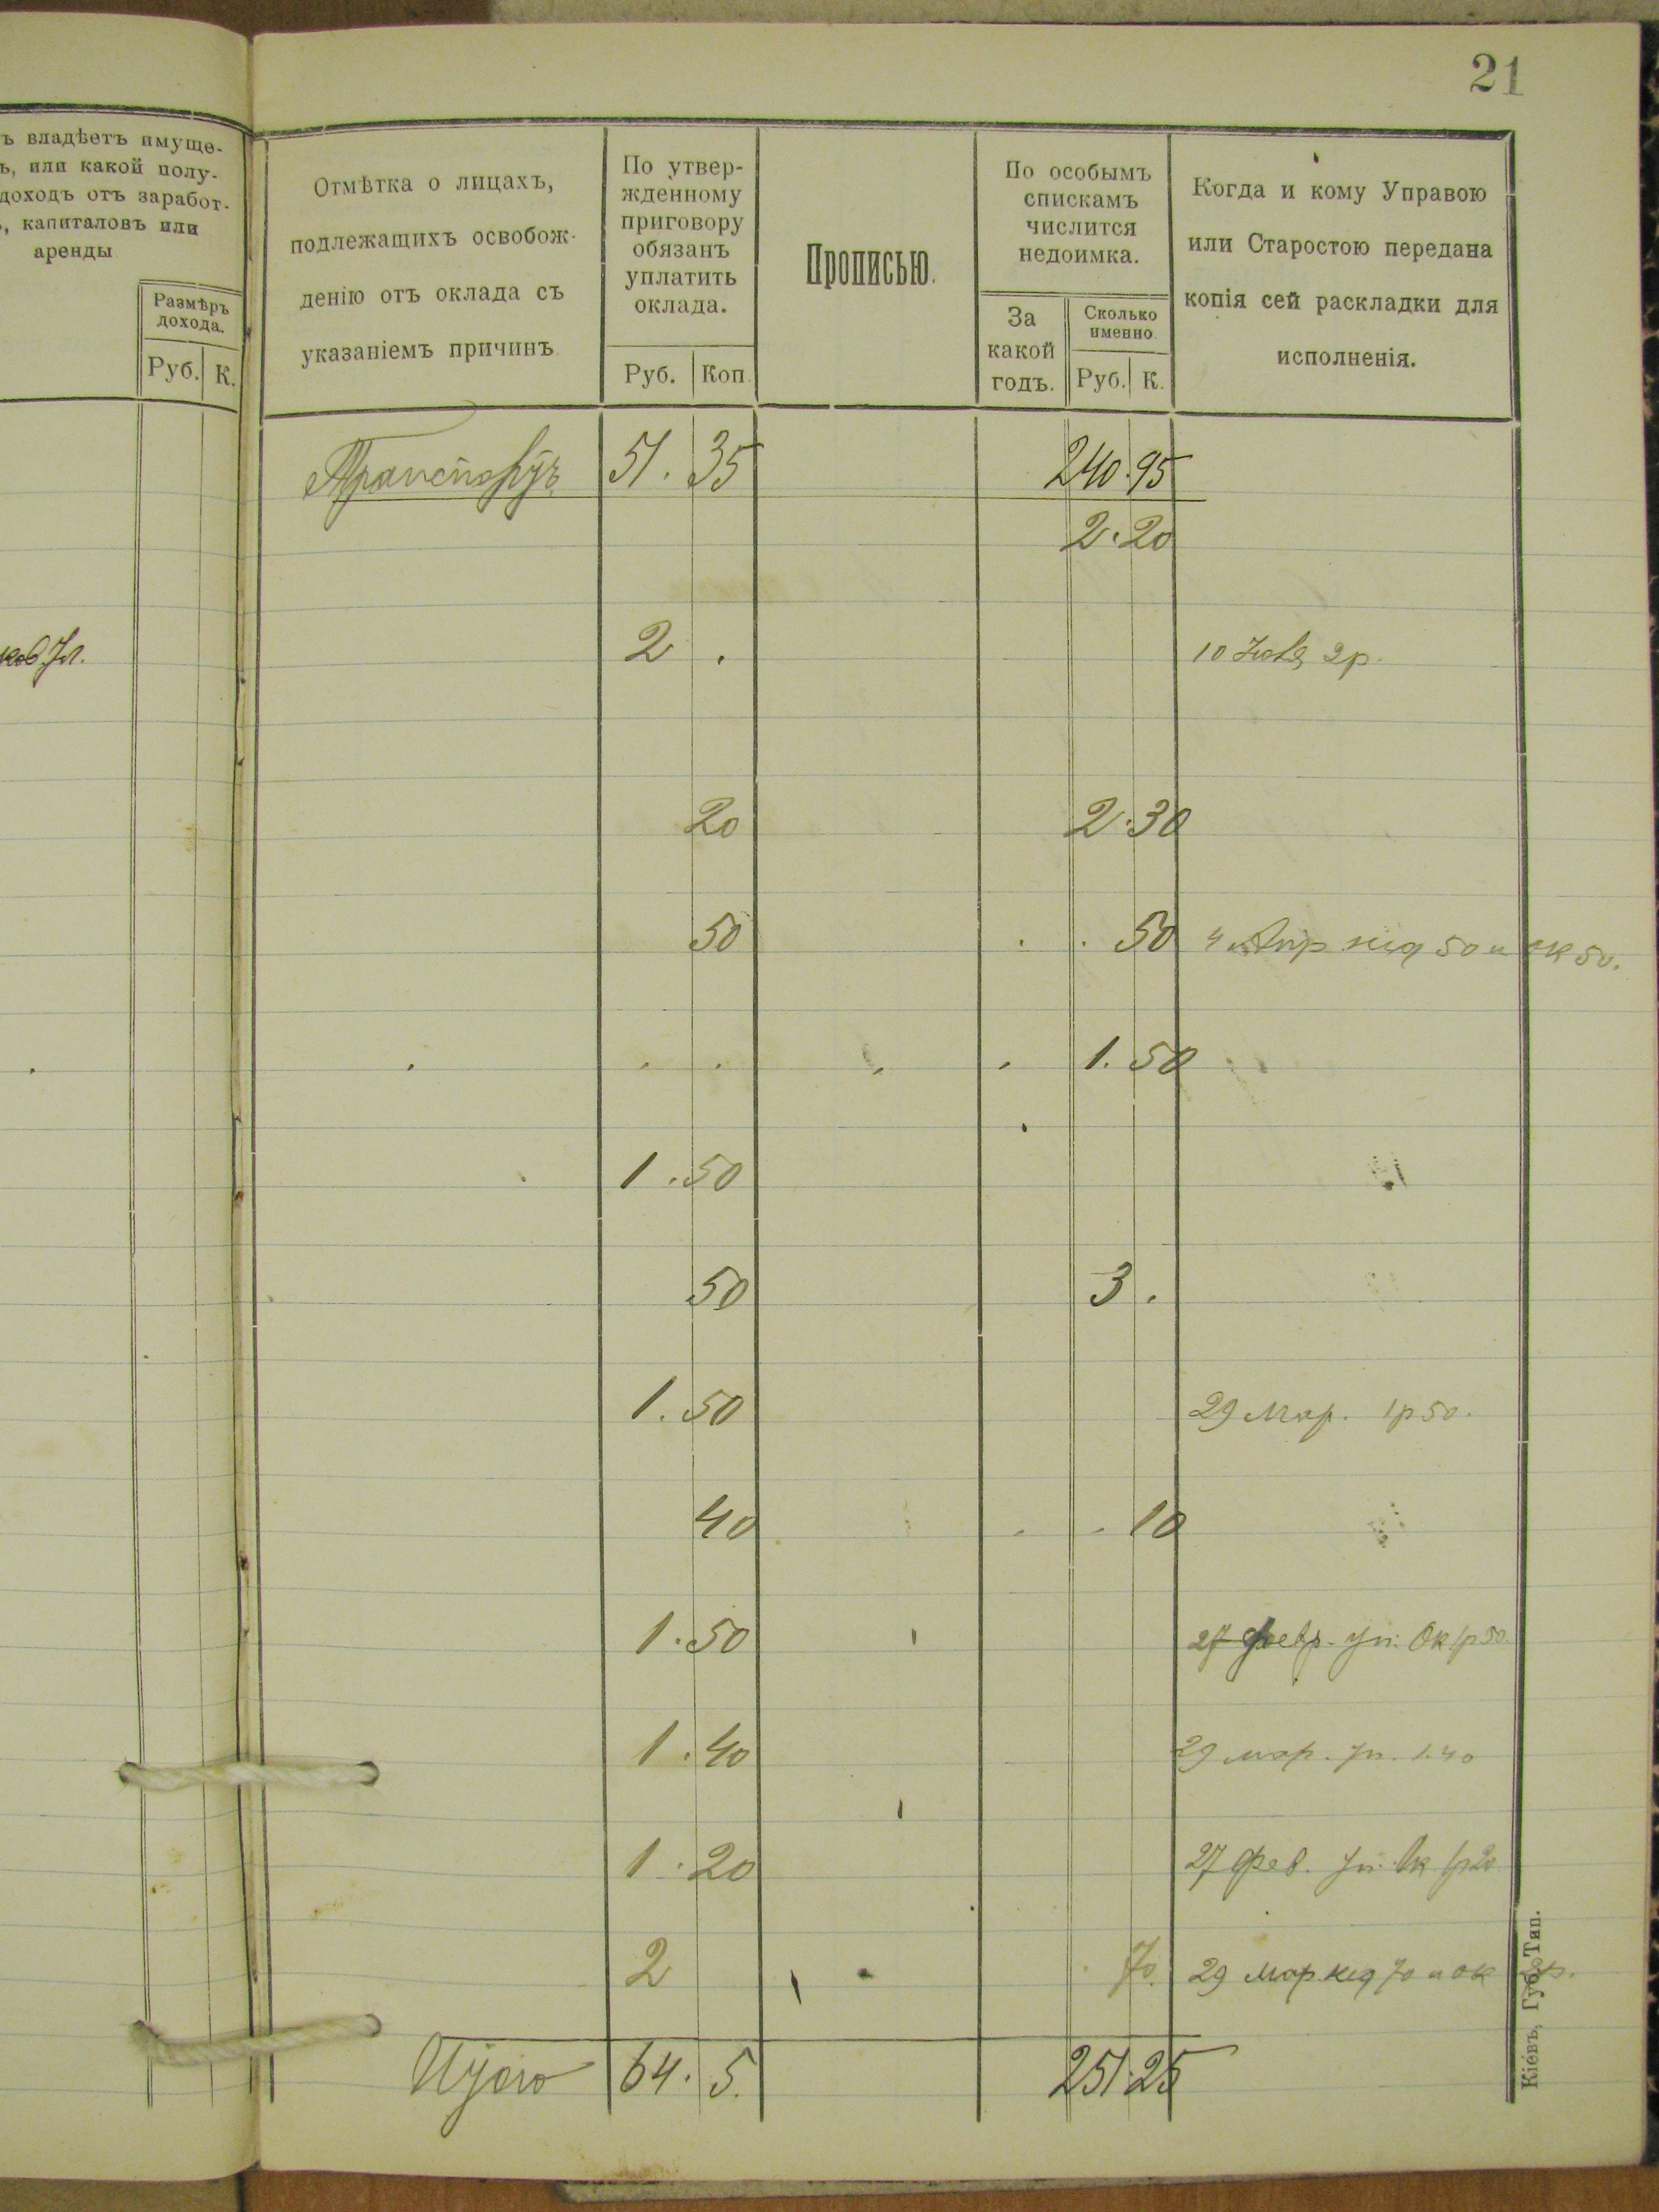 21
ъ владѣетъ имуще-
ъ, или какой полу-
доходъ отъ заработ-
, капиталовъ или
аренды
Размѣръ
дохода.
Руб. К.
Отмѣтка о лицахъ,
подлежащихъ освобож-
денію отъ оклада съ
указаніемъ причинъ.
По утвер-
жденному
приговору
обязанъ
уплатить
оклада.
Руб. Коп.
Прописью.
По особымъ
спискамъ
числится
недоимка.
За
какой
годъ.
Сколько
именно.
Руб. К.
Когда и кому Управою
или Старостою передана
копія сей раскладки для
исполненія.
Транспортъ 51. 35 240. 95
2. 20
2 . 10 2р.
20 2. 30
50 . . 50 4 Апр нед 50 и ок 50.
. . . . . 1. 50
1. 50
50 3 .
1. 50 29 Мар. 1р 50.
40 . . 10
1. 50 27 февр. уп. Ок 1р 50.
1. 40 29 мар. уп. 1.40
1. 20 27 Фев. уп. Ок 1р 20
2 . 70. 29 Мар нед 70 и ок 2р.
Итого 64. 5. 251. 25
Кіевъ, Губ. Тип.